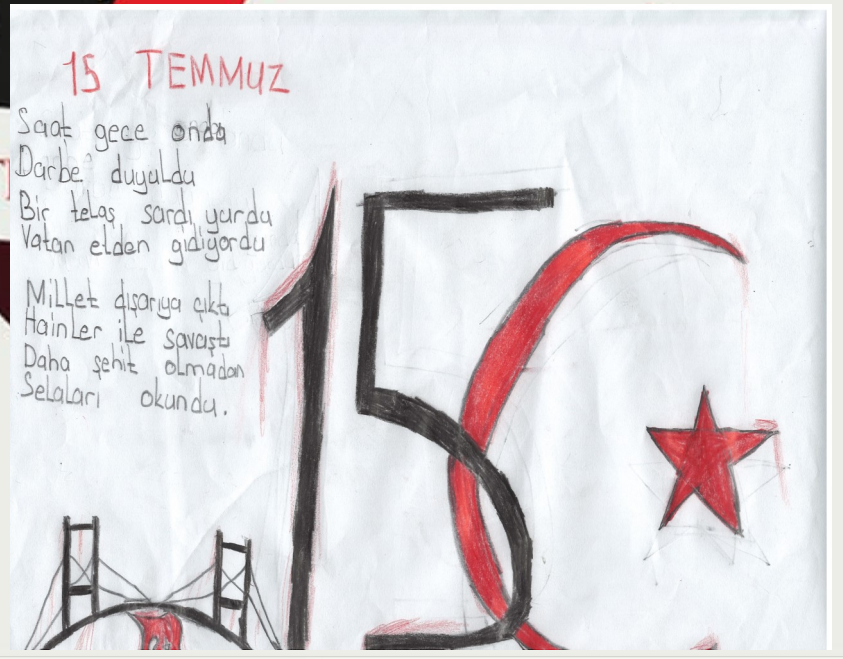 15 TEMMUZ
Saat gece onda
Darbe duyuldu
Bir telaş sardı yurdu
Vatan elden gidiyordu
Millet dışarıya çıktı
Hainler ile savaştı
Daha şehit olmadan
Selaları okundu.
15